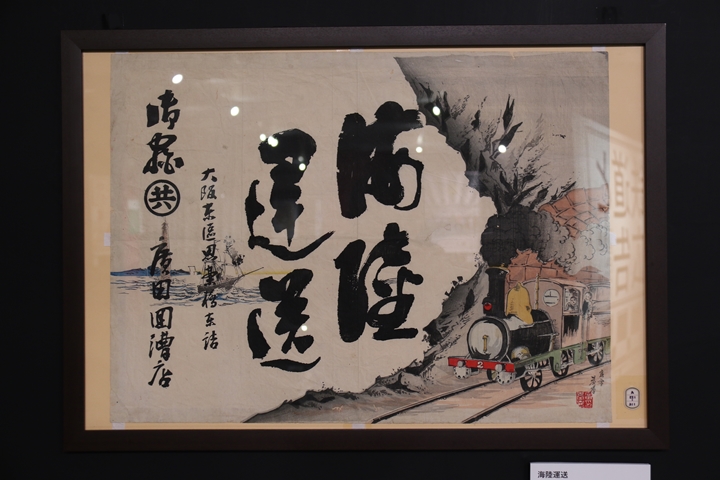 海陸
運送
大阪東區思案橋東詰
共
廣田回漕店
2
海陸運送